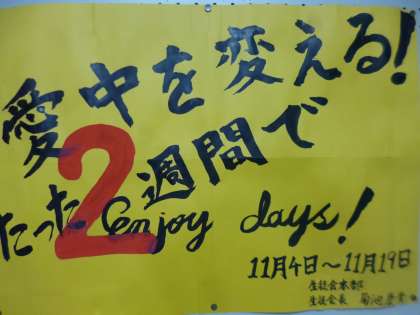 愛中を変える!
たった2週間で
enjoy days!
11月4日～11月19日
生徒会本部
生徒会長